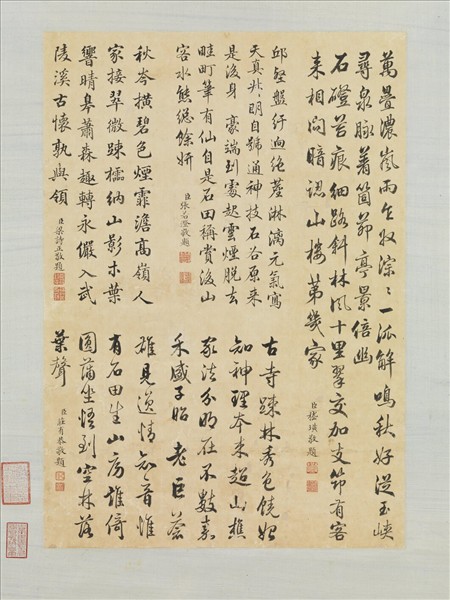 萬疊濃嵐雨乍收淙淙一派解鳴秋好從玉峽
尋泉脉着箇茆亭景倍幽
石磴苔痕細路斜林風十里翠交加支筇有客
来相问暗認山樓第幾家
臣嵇璜敬題
邱壑盤纡面絶崖淋漓元氣寫
天真明自號通神技石谷原来
是後身豪端到處起雲煙脱去
畦町筆有仙自是石田稱賞後山
容水態總餘妍
臣張若澄敬題
秋岑撗碧色煙霏澹高嶺人
家接翠微踈櫺納山影木葉
響晴皋蕭森趣轉永儼入武
陵溪古懷孰與領
臣梁詩正敬題
古寺踈林秀色饒
知神理本来超山樵
家法分明在不數嘉
禾盛子昭老臣薈
雄見逸情惟
有石田生山房誰倚
團蒲坐悟到空林落
葉聲
臣莊有恭敬題